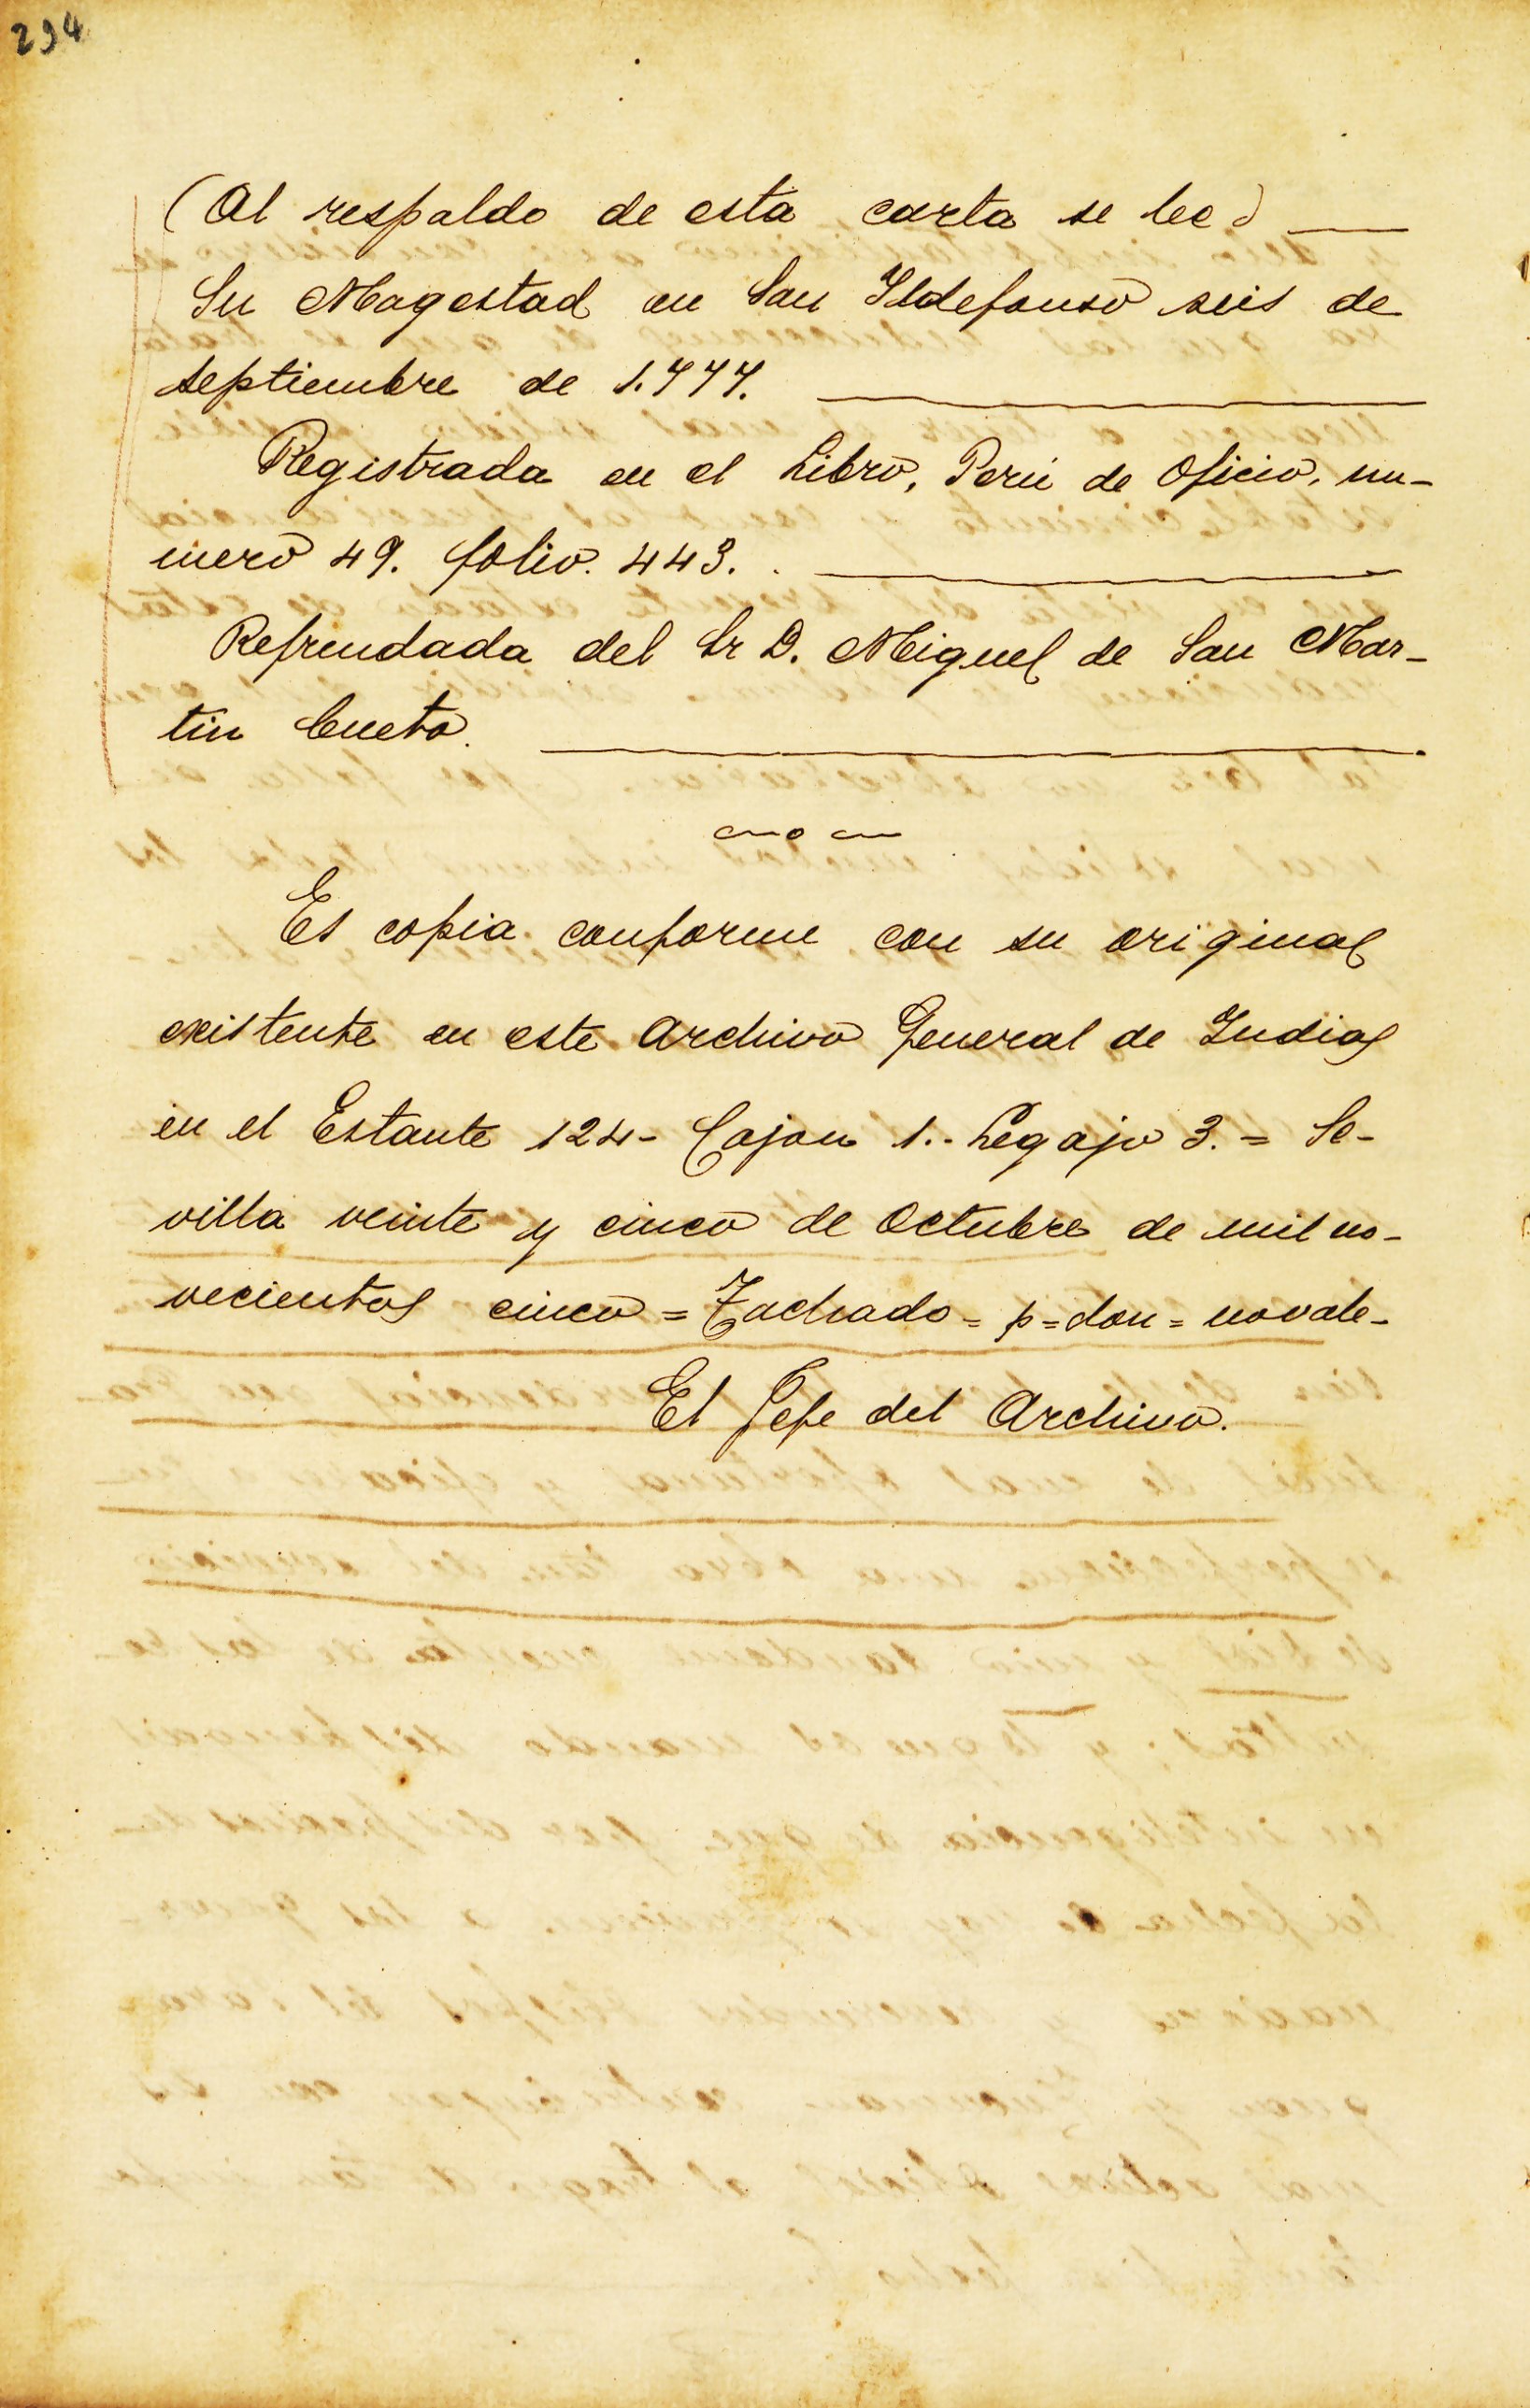 294
(Al respaldo de esta carta se lee)
Su Magestad en San Ildefonso seis de
septiembre de 1.777.
Registrada en el Libro, Perú de Oficio, nu-
mero 49. folio. 443.
Refrendada del Sr D. Miguel de San Mar-
tin Cueto.
Es copia conforme con su original
existente en este Archivo General de Indias
en el Estante 124- Cajon 1.- Legajo 3. = Se-
villa veinte y cinco de Octubre de mil no-
vecientos cinco = Tachado = p = don = no vale -
El Jefe del Archivo.